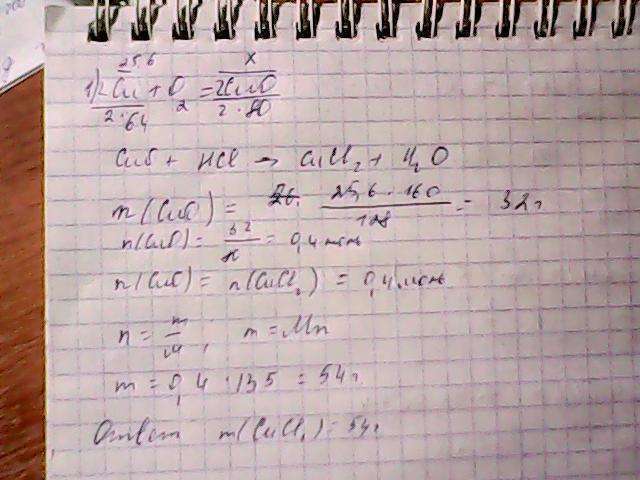 25,6 x
1) 2Cu + O2 = 2CuO
2·64 2·80
CuO + HCl → CuCl2 + H2O
m(CuO) = 25,6 · 160 / 128 = 32г
n(CuO) = 32 / = 0,4 моль
n(CuO) = n(CuCl2) = 0,4 моль
n = m/M, m = Mn
m = 0,4 · 135 = 54г
Ответ m(CuCl2) = 54г